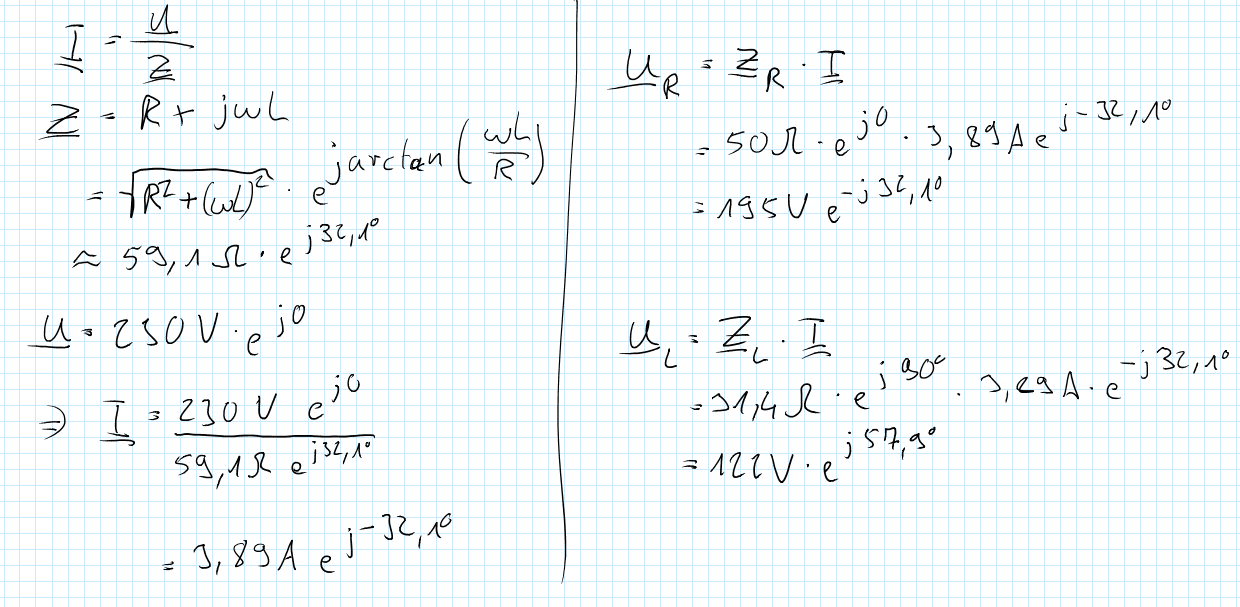 I = U/Z
Z = R + jωL
= √(R² + (ωL)²) · e^(j arctan(ωL/R))
≈ 59,1 Ω · e^(j32,1°)
U = 230 V · e^(j0)
⇒ I = (230 V e^(j0))/(59,1 Ω e^(j32,1°))
= 3,89 A e^(j-32,1°)
U_R = Z_R · I
= 50 Ω · e^(j0) · 3,89 A e^(j-32,1°)
= 195 V e^(-j32,1°)
U_L = Z_L · I
= 31,4 Ω · e^(j90°) · 3,89 A · e^(-j32,1°)
= 122 V · e^(j57,9°)